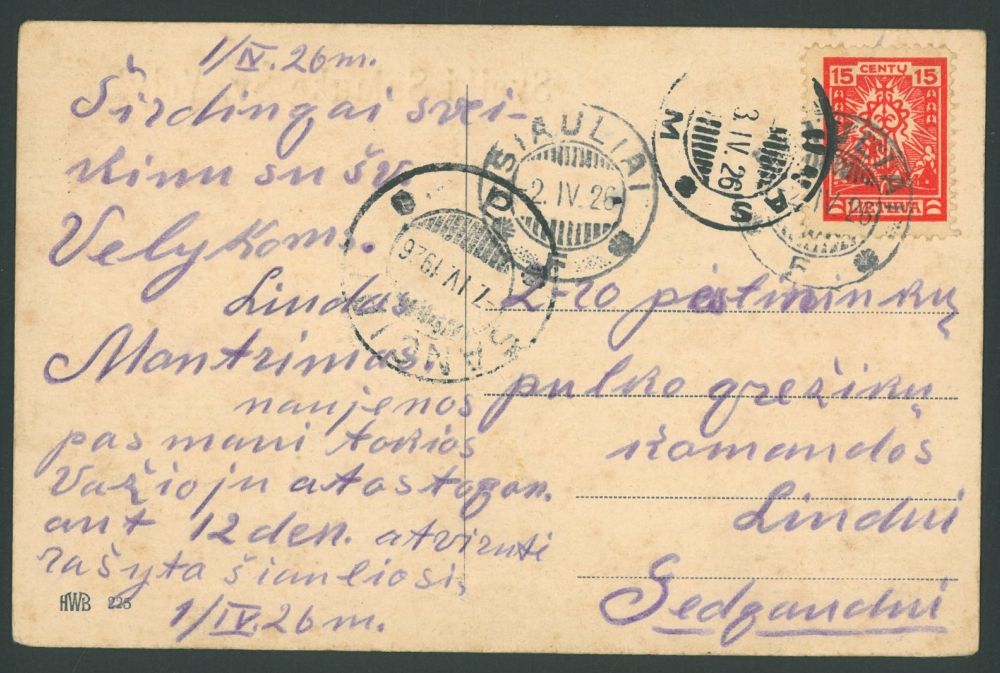 1/IV.26m.
Širdingai svei-
kinu su šv.
Velykoms.
Lindas
Mantrimas.
naujenos
pas mani tokios
Važioju atostogon.
ant 12 den. atviruti
rašyta šiauliosi,
1/IV.26m.
HWB 225
15 CENTŲ 15
LIETUVA
ŠIAULIAI
2. IV. 26
3. IV 26
-7. IV 1926
2-ro pėstininkų
pulko grežikų
komandos
Lindui
Gedgaudui